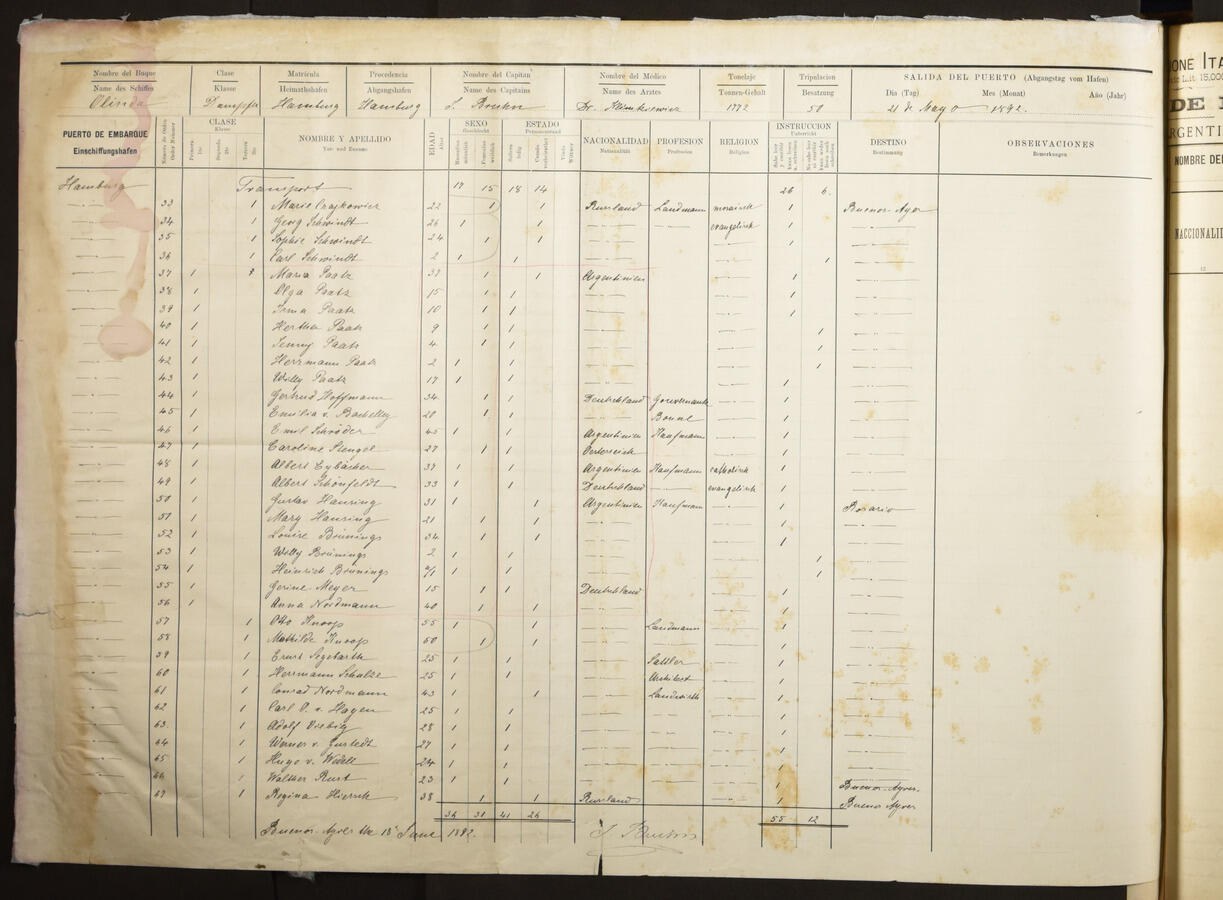 Nombre del Buque Clase Matrícula Procedencia Nombre del Capitan Nombre del Médico Tonelaje Tripulacion SALIDA DEL PUERTO (Abgangstag vom Hafen)
Name des Schiffes Klasse Heimathshafen Abgangshafen Name des Capitains Name des Arztes Tonnen-Gehalt Besatzung Dia (Tag) Mes (Monat) Año (Jahr)
Olinda Dampfer Hamburg Hamburg J. Bruhn Dr. 1772 50 21 de Mayo 1892.
PUERTO DE EMBARQUE Einschiffungshafen CLASE Klasse NOMBRE Y APELLIDO Vor- und Zuname EDAD Alter SEXO Geschlecht ESTADO Personenstand NACIONALIDAD Nationalität PROFESION Profession RELIGION Religion INSTRUCCION Unterricht DESTINO Bestimmung OBSERVACIONES Bemerkungen
Hamburg Transport 17 15 18 14 26 6.
33 1 Marie Czajkowicz 22 1 1 Russland Landmann mosaisch 1 Buenos-Ayer
34 1 Georg Schwindt 26 1 1 evangelisch 1
35 1 Sophie Schwindt 24 1 1 1
36 1 Carl Schwindt 2 1 1 1
37 1 Maria Paatz 39 1 1 Argentinien 1
38 1 Olga Paatz 15 1 1 1
39 1 Irma Paatz 10 1 1 1
40 1 Hertha Paatz 9 1 1 1
41 1 Jenny Paatz 4 1 1 1
42 1 Herrmann Paatz 2 1 1 1
43 1 Willy Paatz 17 1 1 1
44 1 Gertrud Hoffmann 34 1 1 Deutschland Gouvernante 1
45 1 Emilia v. 20 1 1 Bonne 1
46 1 Emil Schröder 45 1 1 Argentinien Kaufmann 1
47 1 Caroline Stengel 27 1 1 Oesterreich 1
48 1 Albert Eybächer 37 1 1 Argentinien Kaufmann catholisch 1
49 1 Albert Schönfeldt 33 1 1 Deutschland evangelisch 1
50 1 Gustav Hansing 31 1 1 Argentinien Kaufmann 1 Rosario
51 1 Mary Hansing 21 1 1 1
52 1 Louise Brünings 34 1 1 1
53 1 Willy Brünings 2 1 1 1
54 1 Heinrich Brünings 1 1 1
55 1 Gerine Meyer 15 1 1 Deutschland 1
56 1 Anna Nordmann 40 1 1 1
57 1 Otto Knoop 55 1 1 Landmann 1
58 1 Mathilde Knoop 50 1 1 1
59 1 Ernst Segebarth 25 1 1 Sattler 1
60 1 Herrmann Schulze 25 1 1 Architect 1
61 1 Conrad Nordmann 43 1 1 Landwirth 1
62 1 Carl O. v. Hagen 25 1 1 1
63 1 Adolf Viebig 28 1 1 1
64 1 Werner v. Gustedt 27 1 1 1
65 1 Hugo v. Wedell 24 1 1 1
66 1 Walther Rust 23 1 1 1 Buenos-Ayres.
67 1 Regina Hiersch 38 1 1 Russland 1 Buenos Ayres
36 31 41 26 55 12
Buenos-Ayres the 15 June 1892. J. Bruhn
ONE ITA
Lit. 15,000
DE
ARGENTI
NOMBRE DEL
NACCIONALID
12